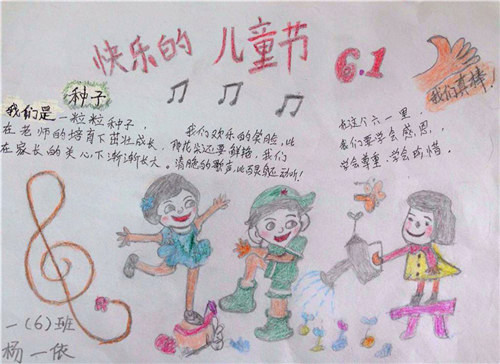 快乐的 儿童节 6.1
我们真棒
种子
我们是一粒粒种子，
在老师的培育下茁壮成长，
在家长的关心下渐渐长大。
我们欢乐的笑脸，比
花朵还要鲜艳，我们
清脆的歌声，比百灵还动听！
在这个六一里，
我们要学会感恩，
学会尊重，学会珍惜。
一(6)班
杨一依